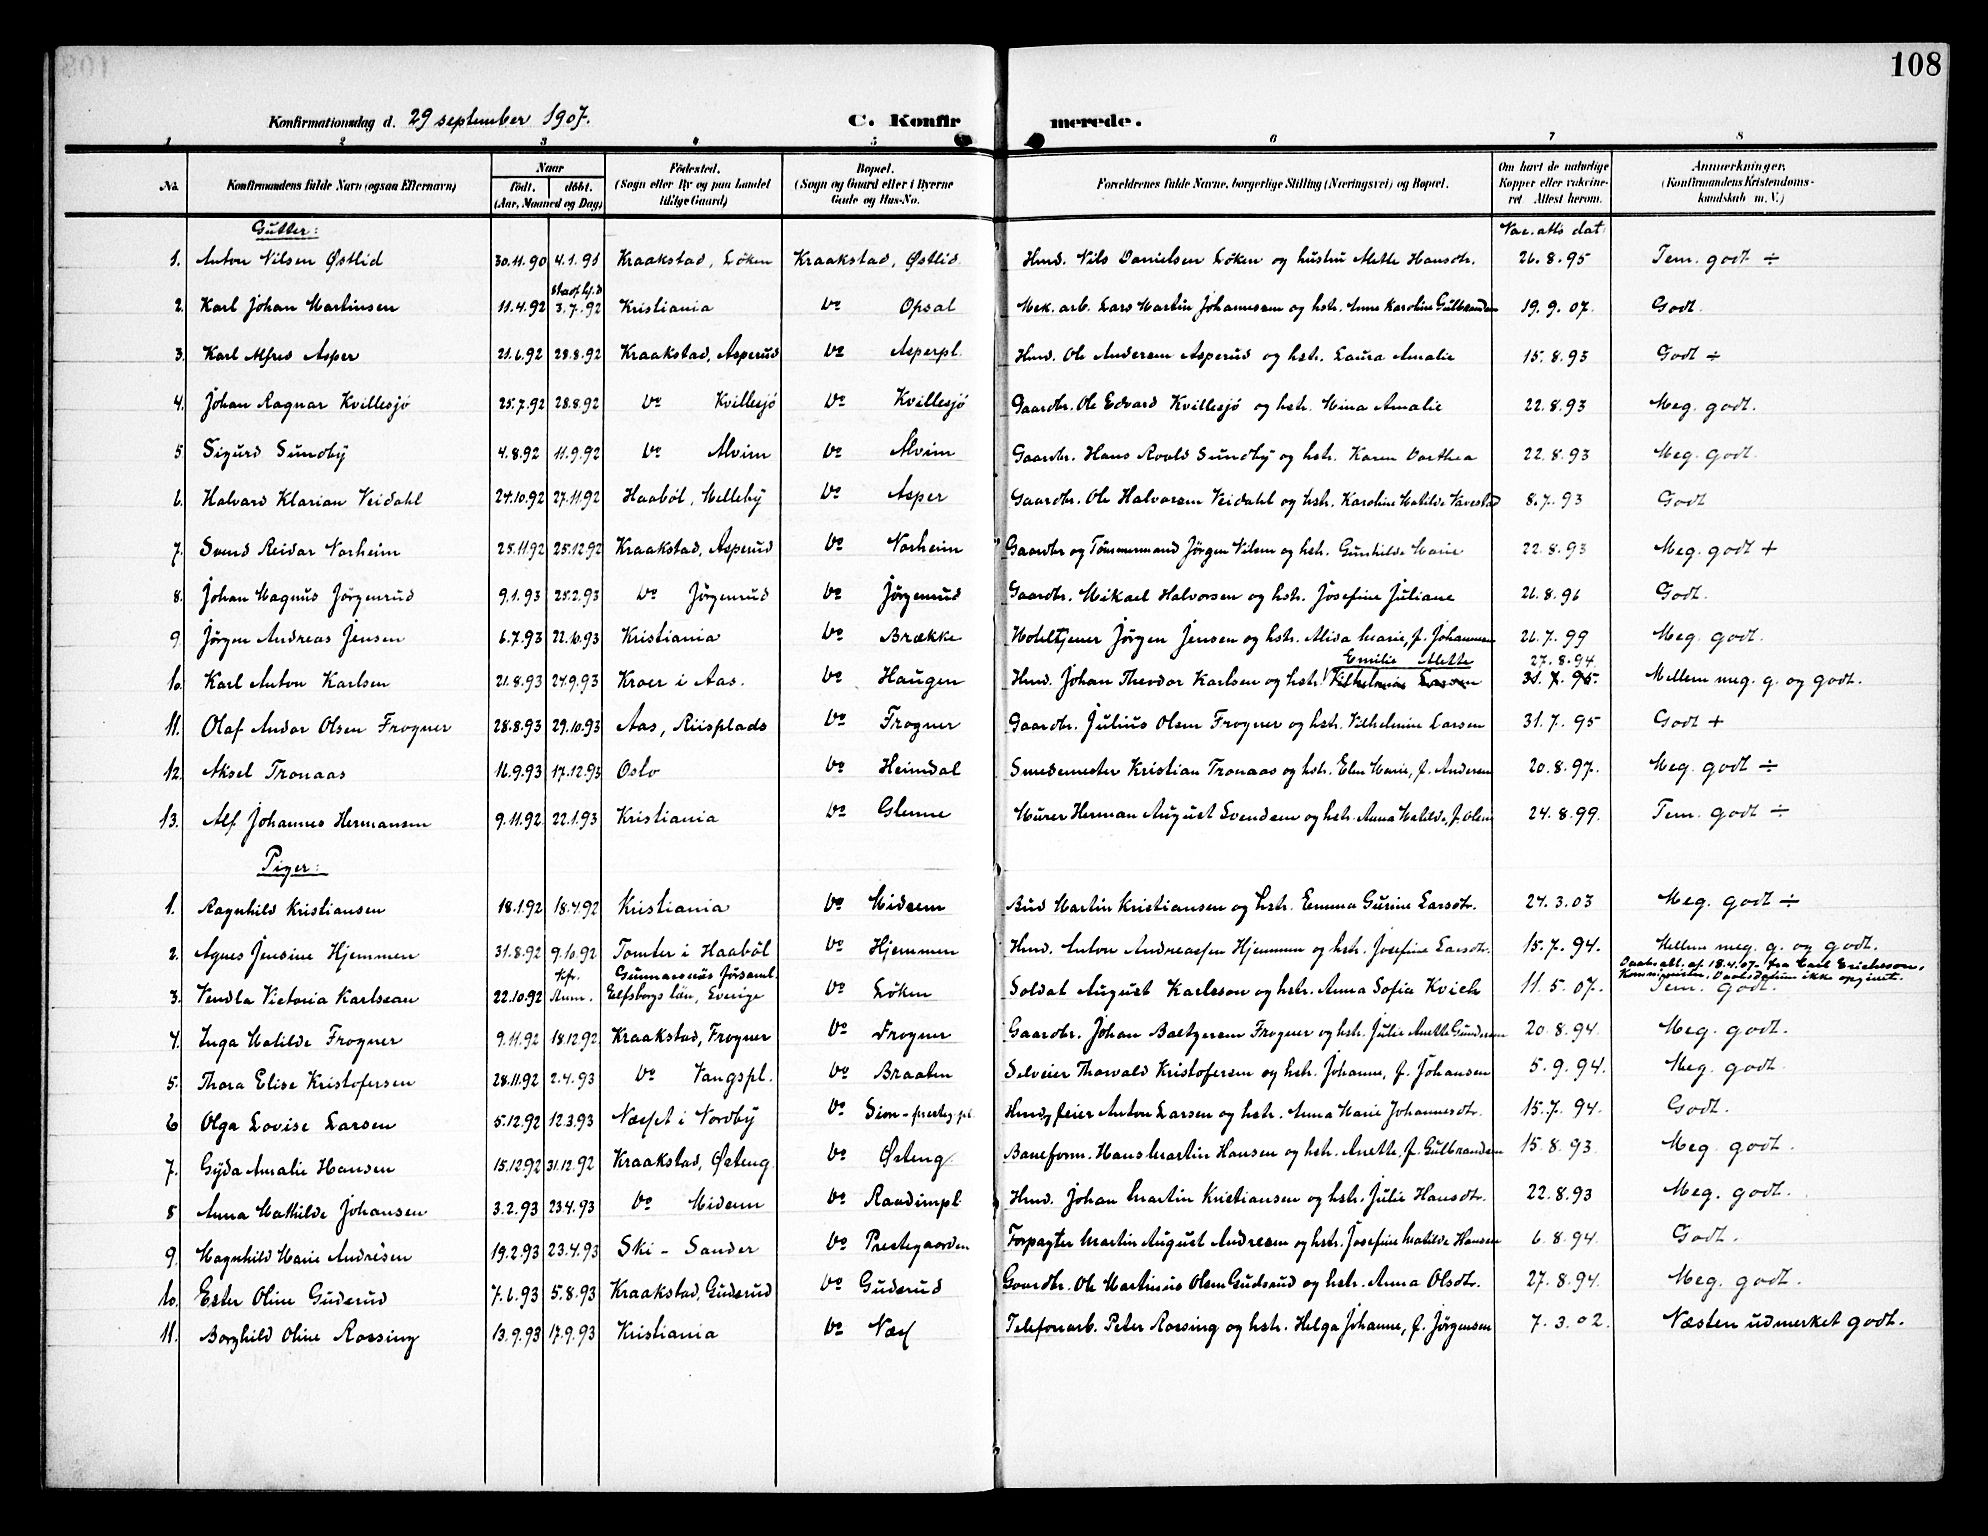 108
Konfirmationsdag d. 29 september 1907. C. Konfirmerede.
1 2 3 4 5 6 7 8
No. Konfirmandens fulde Navn (ogsaa Efternavn) Naar født. døbt. (Aar, Maaned og Dag) Fødested. (Sogn eller By og paa Landet tillige Gaard) Bopæl. (Sogn og Gaard eller i Byerne Gade og Hus-No. Forældrenes fulde Navne, borgerlige Stilling (Næringsvei) og Bopæl. Om havt de naturlige Kopper eller vakcineret Attest herom. Anmærkninger. (Konfirmandens Kristendomskundskab m. V.)
Gutter: Vac. atts dat.
1. Anton Nilsen Østlid 30.11.90 4.1.91 Kraakstad, Löken Kraakstad, Østlid Hmd. Nils Danielsen Löken og hustru Mette Hansdtr. 26.8.95 Tem. godt ÷
2. Karl Johan Martinsen 11.4.92 3.7.92 Kristiania Do Opsal Mek. arb. Lars Martin Johannesen og hstr. Anne Karoline Gulbrandsen 19.9.07. Godt.
3. Karl Alfred Asper 21.6.92 28.8.92 Kraakstad, Asperud Do Asperpl. Hmd. Ole Andersen Asperud og hstr. Laura Amalie 15.8.93 Godt ÷
4. Johan Ragnar Kvillesjö 25.7.92 28.8.92 Do Kvillesjö Do Kvillesjö Gaardbr. Ole Edvard Kvillesjö og hstr. Mina Amalie 22.8.93 Meg. godt.
5 Sigurd Sundby 4.8.92 11.9.92 Do Alvim Do Alvim Gaardbr. Hans Roald Sundby og hstr. Karen Dorthea 22.8.93 Meg. godt.
6. Halvard Klarian Veidahl 24.10.92 27.11.92 Haaböl, Melleby Do Asper Gaardbr. Ole Halvorsen Veidahl og hstr. Karoline Matilde 8.7.93 Godt
7. Svend Reidar Norheim 25.11.92 25.12.92 Kraakstad, Asperud Do Norheim Gaardbr og Tömmermand Jörgen Nilsen og hstr. Gunhilde Marie 22.8.93 Meg. godt +
8. Johan Magnus Jörgenrud 9.1.93 25.2.93 Do Jörgenrud Do Jörgenrud Gaardbr. Mikael Halvorsen og hstr. Josefine Juliane 26.8.96 Godt.
9 Jörgen Andreas Jensen 6.7.93 22.10.93 Kristiania Do Brække Hoteltjener Jörgen Jensen og hstr. Alida Marie, f. Johannesen 26.7.99 Meg. godt.
Emilie Mette 27.8.94.
10. Karl Anton Karlsen 21.8.93 24.9.93 Kroer i Aas. Do Haugen Hmd. Johan Theodor Karlsen og hstr. Vilhelmine Larsen 31.7.95. Mellem meg. g. og godt.
11. Olaf Andor Olsen Frogner 28.8.93 29.10.93 Aas, Riisplads Do Frogner Gaardbr. Julius Olsen Frogner og hstr. Vilhelmine Larsen 31.7.95 Godt +
12. Aksel Tronaas 16.9.93 17.12.93 Oslo Do Heimdal Smedemester Kristian Tronaas og hstr. Elen Marie, f. Andersen 20.8.97. Meg. godt ÷
13. Alf Johannes Hermansen 9.11.92 22.1.93 Kristiania Do Glenne Murer Herman August Svendsen og hstr. Anna Matilde, f. Olsen 24.8.99. Tem. godt ÷
Piger:
1. Ragnhild Kristiansen 18.1.92 18.4.92 Kristiania Do Midsem Bud Martin Kristiansen og hstr. Emma Gurine Larsdtr. 24.3.03 Meg. godt ÷
2. Agnes Jensine Hjemmen 31.8.92 9.10.92 Tomter i Haaböl Do Hjemmen Hmd. Anton Andreassen Hjemmen og hstr. Josefine Larsdtr. 15.7.94. Mellem meg. g. og godt.
Daabsatt. af 18.4.07. fra Carl Erichsson, Kommminister, Daabsdatum ikke opgivet.
3. Vendla Victoria Karlsean 22.10.92 kfr. Anm. Gunnarsnäs församl. Elfsborgs län, Sverige Do Löken Soldat August Karlsson og hstr. Anna Sofia Kvick 11.5.07. Tem. godt.
4. Inga Matilde Frogner 9.11.92 18.12.92 Kraakstad, Frogner Do Frogner Gaardbr. Johan Baltzersen Frogner og hstr. Julie Anette Gundersen 20.8.94. Meg. godt.
5. Thora Elise Kristofersen 28.11.92 2.4.93 Do Vangspl. Do Braaten Selveier Thorvald Kristofersen og hstr. Johanne, f. Johansen 5.9.94. Meg. godt.
6 Olga Lovise Larsen 5.12.92 12.3.93 Næsset i Nordby Do Sion-presteg.pl. Anton Larsen og hstr. Anna Marie Johannesdtr. 15.7.94. Godt.
7. Gyda Amalie Hansen 15.12.92 31.12.92 Kraakstad, Østeng Do Østeng Baneform. Hans Martin Hansen og hstr. Anette, f. Gulbrandsen 15.8.93. Meg. godt.
8 Anna Mathilde Johansen 3.2.93 23.4.93 Do Midsem Do Raadimpl. Hmd. Johan Martin Kristiansen og hstr. Julie Hansdtr. 22.8.93 Meg. godt.
9. Magnhild Marie Andresen 19.2.93 23.4.93 Ski - Sander Do Prestegaarden Forpagter Martin August Andresen og hstr. Josefine Matilde Hansen 6.8.94. Godt.
10. Ester Oline Guderud 7.6.93 5.8.93 Kraakstad, Guderud Do Guderud Gaardbr. Ole Martinius Olsen Guderud og hstr. Anna Olsdtr. 27.8.94. Meg. godt.
11. Borghild Oline Rossing 13.9.93 17.9.93 Kristiania Do Næs Telefonarb. Peter Rossing og hstr. Helga Johanne, f. Jörgensen 7.3.02. Næsten udmerket godt.